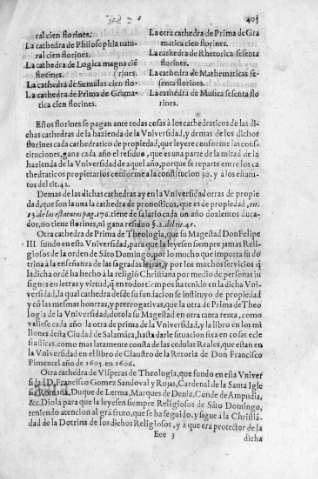 403
ral cien florines.
La cathedra de Philosophia natural cien florines.
La cathedra de Logica magna cien florines.
La cathedra de Sumulas cien florines.
La cathedra de Prima de Gramatica cien florines.
La otra cathedra de Prima de Gramatica cien florines.
La cathedra de Rhetorica sesenta florines.
La cathedra de Mathematicas sesenta florines.
La cathedra de Musica sesenta florines.
Estos florines se pagan ante todas cosas à los cathedraticos de las dichas
cathedras de la hazienda de la Vniversidad, y demas de los dichos
florines cada cathedratico de propiedad, que leyere conforme las constituciones,
gana cada año el residuo, que es una parte de la mitad de la
hazienda de la Vniversidad de aquel año, porque se reparte entre los cathedraticos
propietarios conforme a la constitucion 30. y a los estatutos
del tit. 42.
Demas de las dichas cathedras ay en la Vniversidad otras de propiedad,
que son la una la cathedra de pronosticos, que es de propiedad,
pag. 176. tiene de salario cada un año dozientos ducados,
no tiene florines, ni gana residuo
Otra cathedra de Prima de Theologia, que su Magestad Don Felipe
III fundo en esta Vniversidad, para que la leyesen siempre jamas Religiosos
de la orden de Sāto Domingo, por lo mucho que importa su dotrina
à la enseñança de las sagradas letras, y por los muchos servicios q̄
la dicha ordē ha hecho à la religiō Christiana por medio de personas insignes
en letras y virtud, q̄ en todos tiēpos ha tenido en la dicha Vniversidad,
la qual cathedra desde su fundacion se instituyo de propiedad
y cō las mesmas honras, y prerrogativas, que la otra de Prima de Theologia
de la Vniversidad, dotola su Magestad en otra tanta renta, como
valiese cada año la otra de prima de la Vniversidad, y la libro en los millones
desta Ciudad de Salamāca, hasta darle situacion fixa en cosas eclesiasticas:
como mas latamente consta de las cedulas Reales, que estan en
la Vniversidad en el libro de Claustro de la Retoria de Don Francisco
Pimentel año de 1605 en 1606.
Otra cathedra de Visperas de Theologia, que fundo en esta Vniversidad
D. Francisco Gomez Sandoval y Rojas, Cardenal de la Santa Iglesia
Romana, Duque de Lerma, Marques de Denia, Conde de Ampudia,
&c. Diola para que la leyesen siempre Religiosos de Sāto Domingo,
teniendo atencion al gra fruto, que se ha seguido, y sigue à la Christiādad
de la Dotrina de los dichos Religiosos, y à que era protector de la
Eee 3
dicha